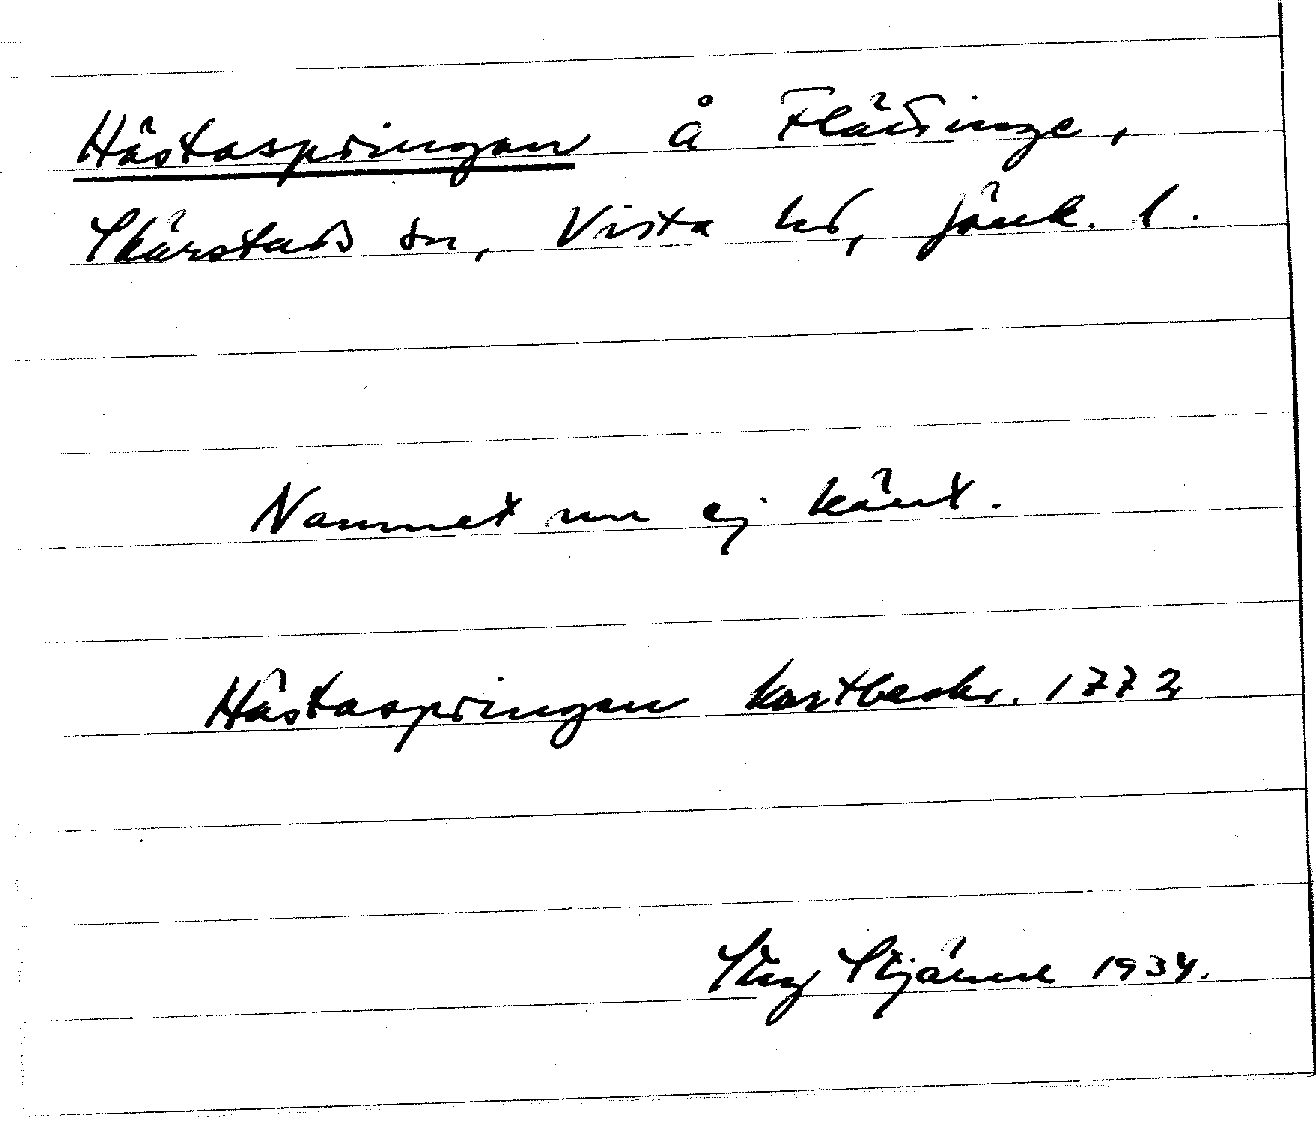 Hästaspringan å Flättinge,
Skärstads sn, Vista hd, Jönk. l.
Namnet nu ej känt.
Hästaspringan kartbeskr. 1772
Stig 1934.